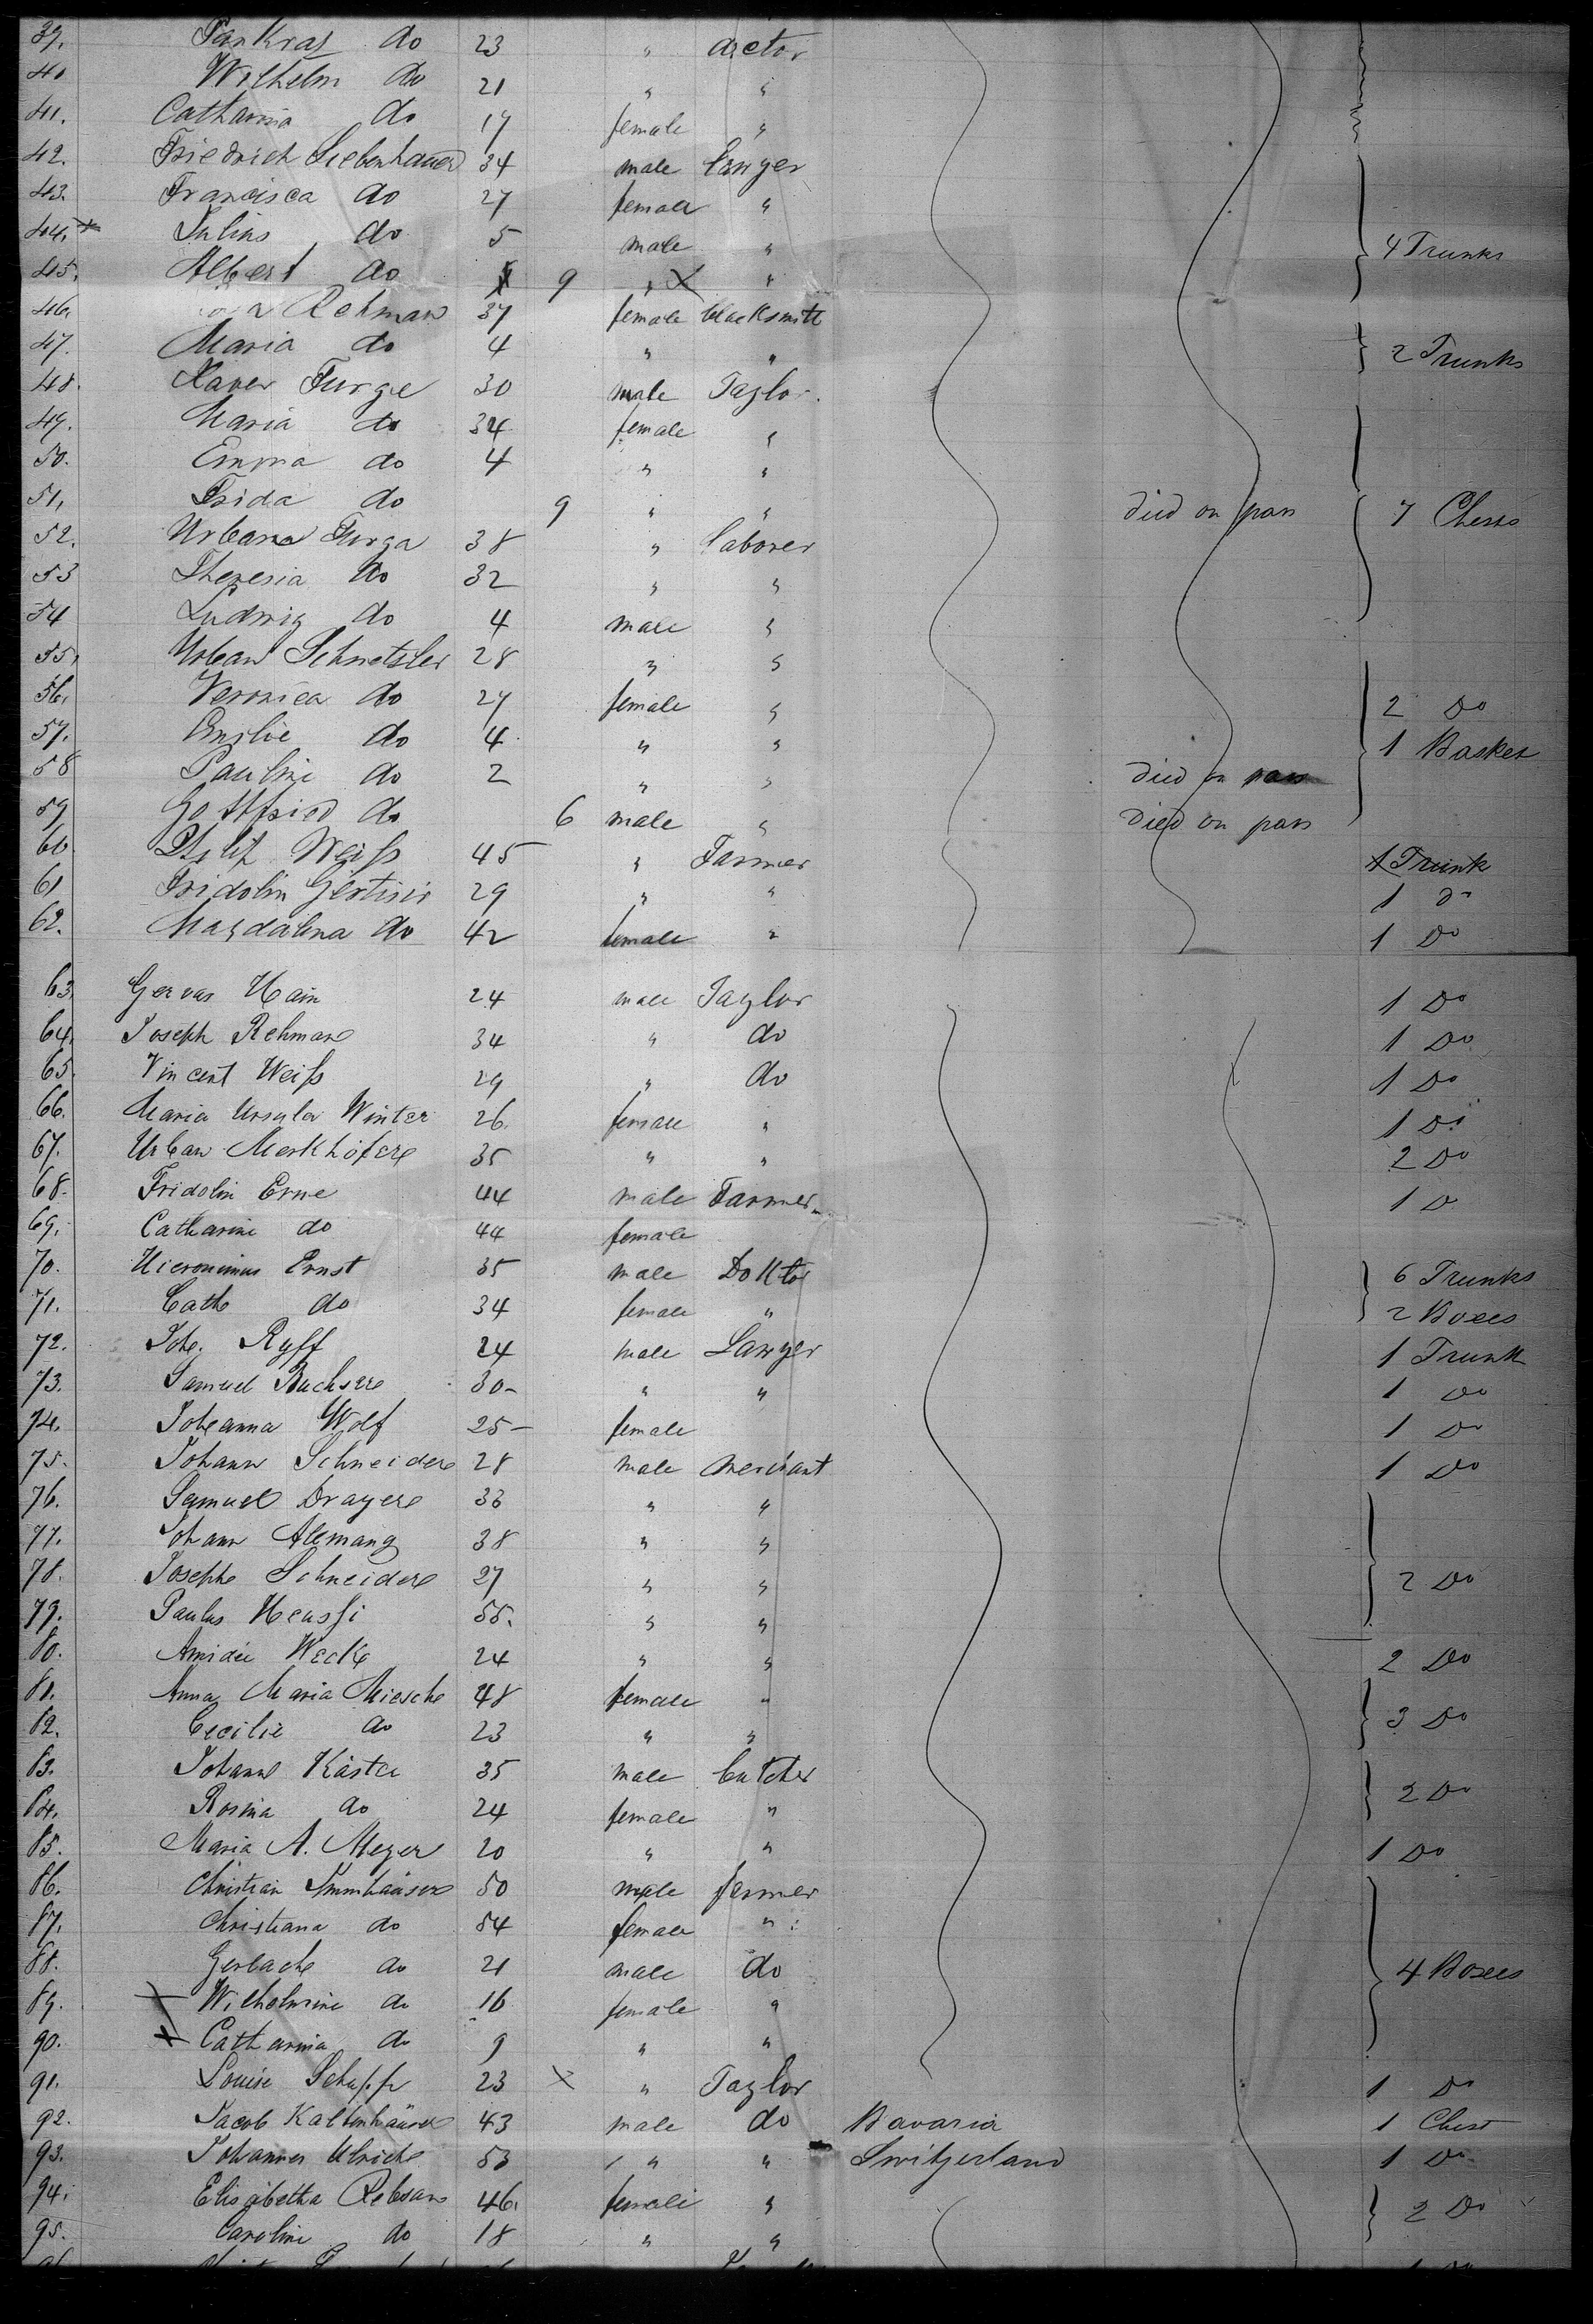 39. Pankraz do 23 " actor
40 Wilhelm do 21 " "
41. Catharina do 17 female "
42. Friedrich Siebenhauer 34 male lawyer
43. Francisca do 27 female "
44. x Julius do 5 male " 4 Trunks
45. Albert do 9 " x "
46. Rehman 37 female blacksmith
47. Maria do 4 " " 2 Trunks
48. Xaver Furge 30 male Taylor.
49. Maria do 34 female "
50. Emma do 4 " "
51. Frida do 9 " " died on pass 7 Chests
52. Urbana Furga 38 " laborer
53 Theresia do 32 " "
54 Ludwig do 4 male "
55. Urban Schnetsler 28 " "
56. Veronica do 27 female " 2 Do
57. Emilie do 4 " " 1 Basket
58 Pauline do 2 " " died on pass
59 Gottfried do 6 male " died on pass
60 Weiſs 45 " Farmer 1 Trunk
61 Fridolin Gertisir 29 " " 1 do
62. Magdalena do 42 female " 1 Do
63. Gervas Hain 24 male Taylor 1 Do
64. Joseph Rehman 34 " do 1 Do
65. Vincent Weiſs 29 " do 1 Do
66. Maria Ursula Winter 26. female " 1 Do
67. Urban Merkhofer 35 " " 2 Do
68. Fridolin Erne 44 male Farmer 1 D
69. Catharine do 44 female
70. Hieronimus Ernst 35 male Doktor 6 Trunks
71. Cath do 34 female " 2 Boxes
72. Joh. Ryff 24 male Lawyer 1 Trunk
73. Samuel Buchser 30- " " 1 Do
74. Johanna Wolf 25- female 1 Do
75. Johann Schneider 28 male merchant 1 Do
76. Samuel Drayer 33 " "
77. Johann Alemang 38 " "
78. Joseph Schneider 27 " " 2 Do
79. Paulus Heussi 55. " "
80. Amidée Weck 24 " " 2 Do
81. Anna Maria Miesch 48 female "
82. Cecilie do 23 " " 3 Do
83. Johann Kaster 35 male butcher
84. Rosina do 24 female " 2 Do
85. Maria A. Meyer 20 " " 1 Do
86. Christian 50 male farmer
87. Christiana do 54 female "
88. Gerlach do 21 male do 4 Boxes
89. x Wilhelmine do 16 female "
90. x Catharina do 9 " "
91. Louise Schupp 23 x " Taylor 1 Do
92. Jacob Kaltenhäuser 43 male do Bavaria 1 Chest
93. Johannes Ulrich 53 " " Switzerland 1 Do
94. Elisabetha Rebsam 46. female " 2 Do
95. Caroline do 18 " "